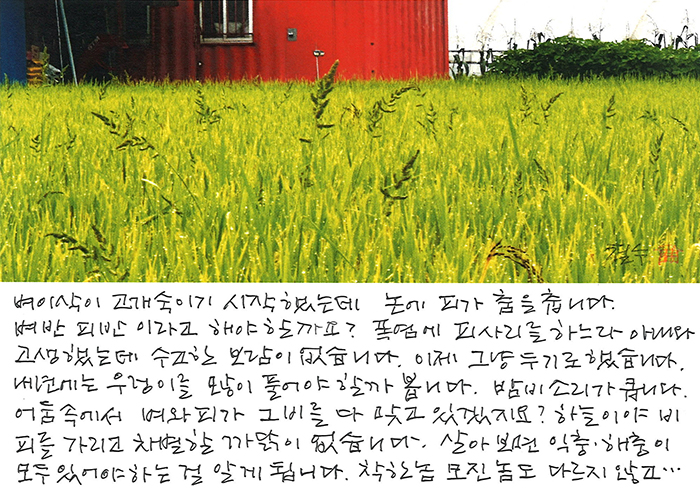 철수
벼이삭이 고개숙이기 시작했는데 논에 피가 춤을 춥니다.
벼반 피반 이라고 해야 할까요? 폭염에 피사리를 하느라 아내와
고생했는데 수고한 보람이 없습니다. 이제 그냥 두기로 했습니다.
내년에는 우렁이를 많이 풀어야 할까 봅니다. 밤비 소리가 큽니다.
어둠속에서 벼와 피가 그비를 다 맞고 있겠지요? 하늘이야 벼
피를 가리고 차별할 까닭이 없습니다. 살아 보면 익충·해충이
모두 있어야 하는 걸 알게 됩니다. 착한놈 모진 놈도 다르지 않고…